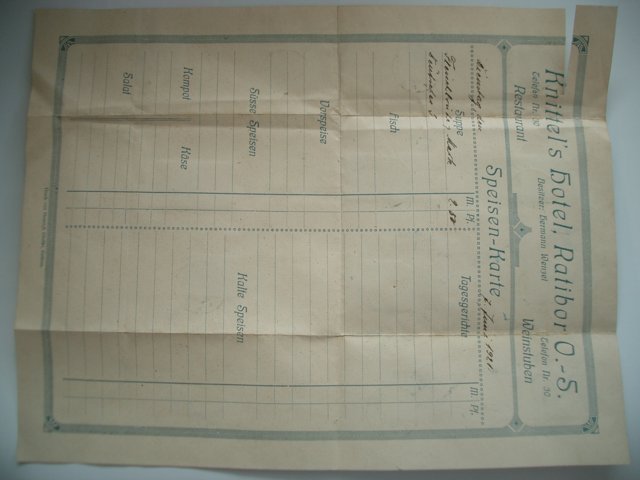 Knittel's Hotel, Ratibor O.-S.
Telefon Nr. 30 Besitzer: Hermann Wenzel Telefon Nr. 30
Restaurant Weinstuben
Speisen-Karte
Dienstag den 7. Juni 1921
Suppe M. Pf. Tagesgerichte M. Pf.
2.50
Fisch
Vorspeise
Süsse Speisen Kalte Speisen
Kompot Käse
Salat